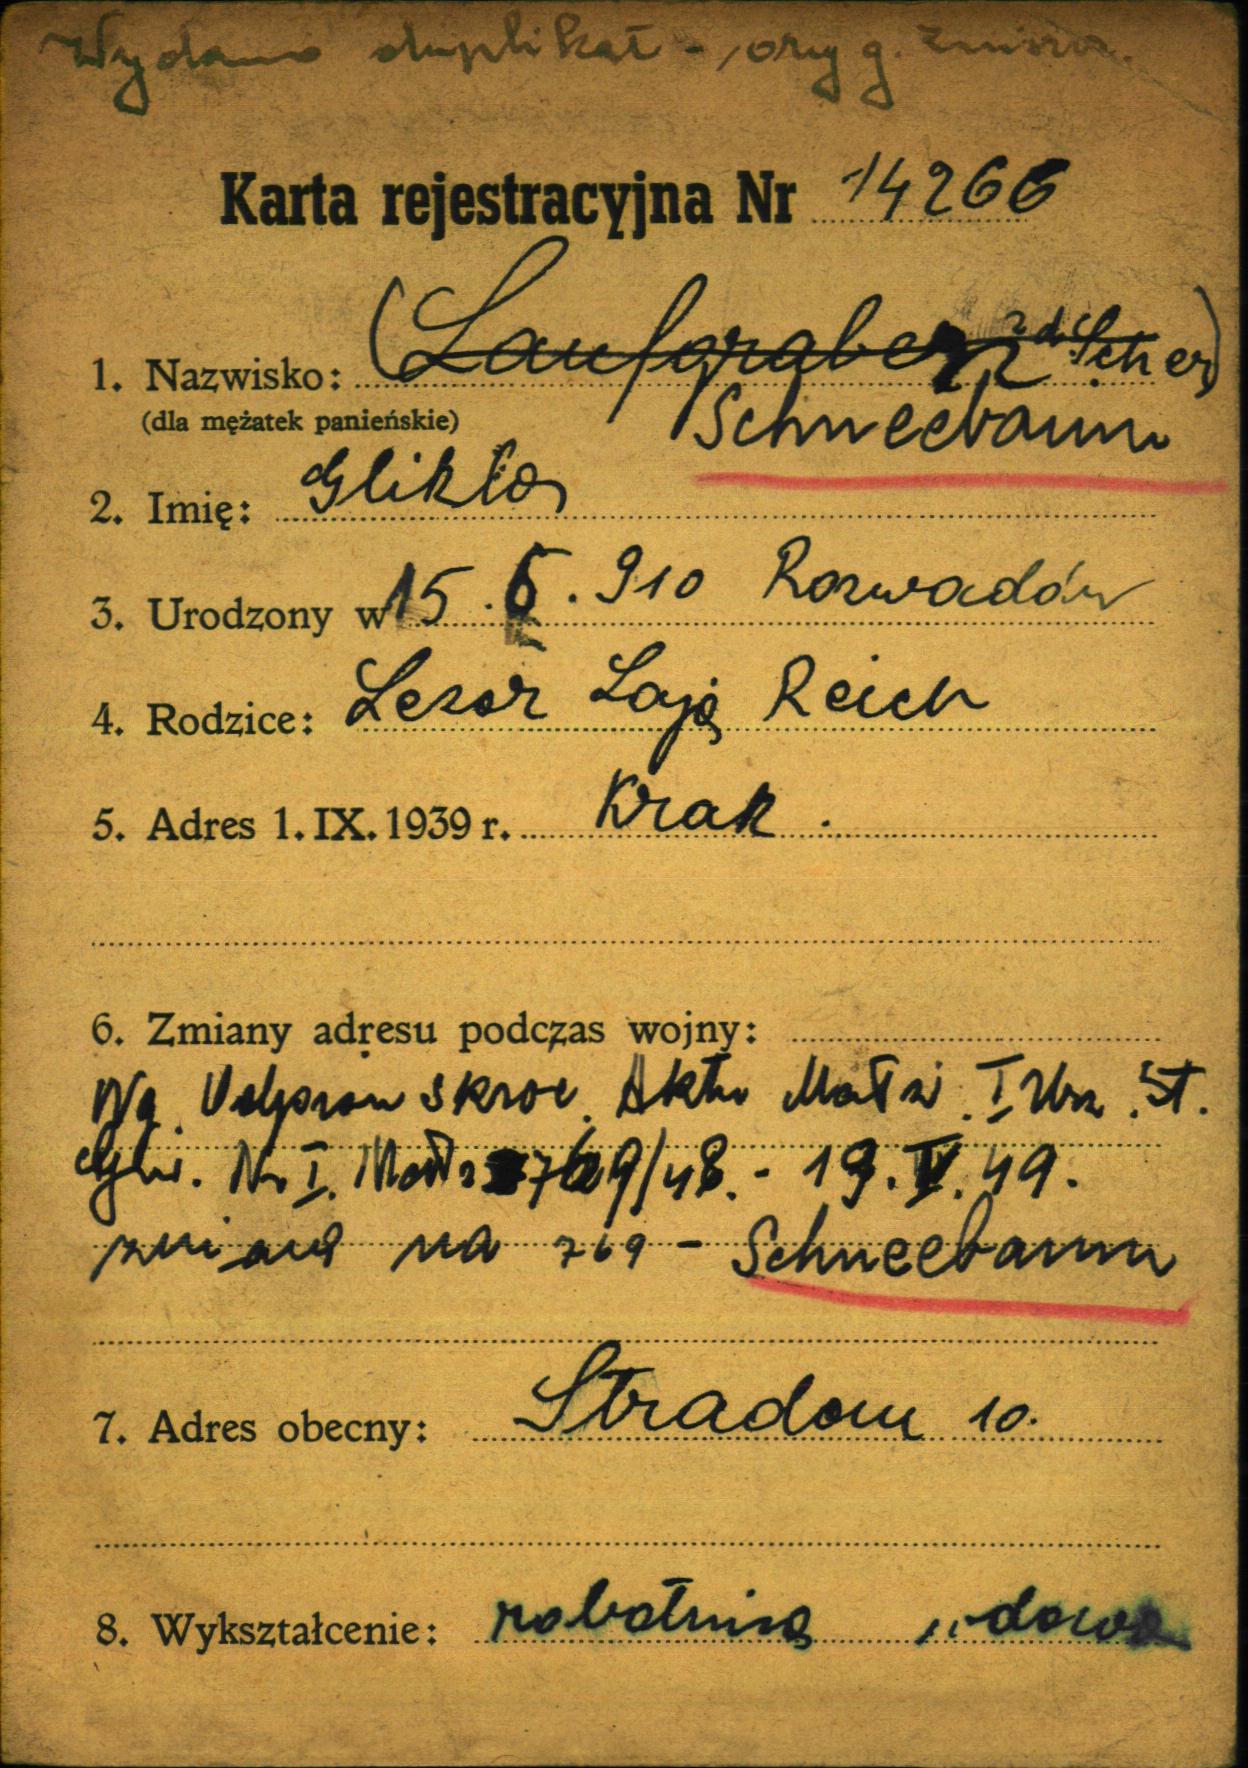 Wydano duplikat - oryg.
Karta rejestracyjna Nr 14266
1. Nazwisko: (Laufgraber Scher)
(dla mężatek panieńskie) Schneebaum
2. Imię: Glikla
3. Urodzony w 15.5.910 Rozwadów
4. Rodzice: Lezor Laja Reich
5. Adres 1. IX. 1939 r. Krak.
6. Zmiany adresu podczas wojny:
Wg. skroc. Aktu Małż. I Urz. St.
Nr I. 769/48. - 19. IV. 49.
zmiana na 769 - Schneebaum
7. Adres obecny: Stradom 10.
8. Wykształcenie: robotnica wdowa